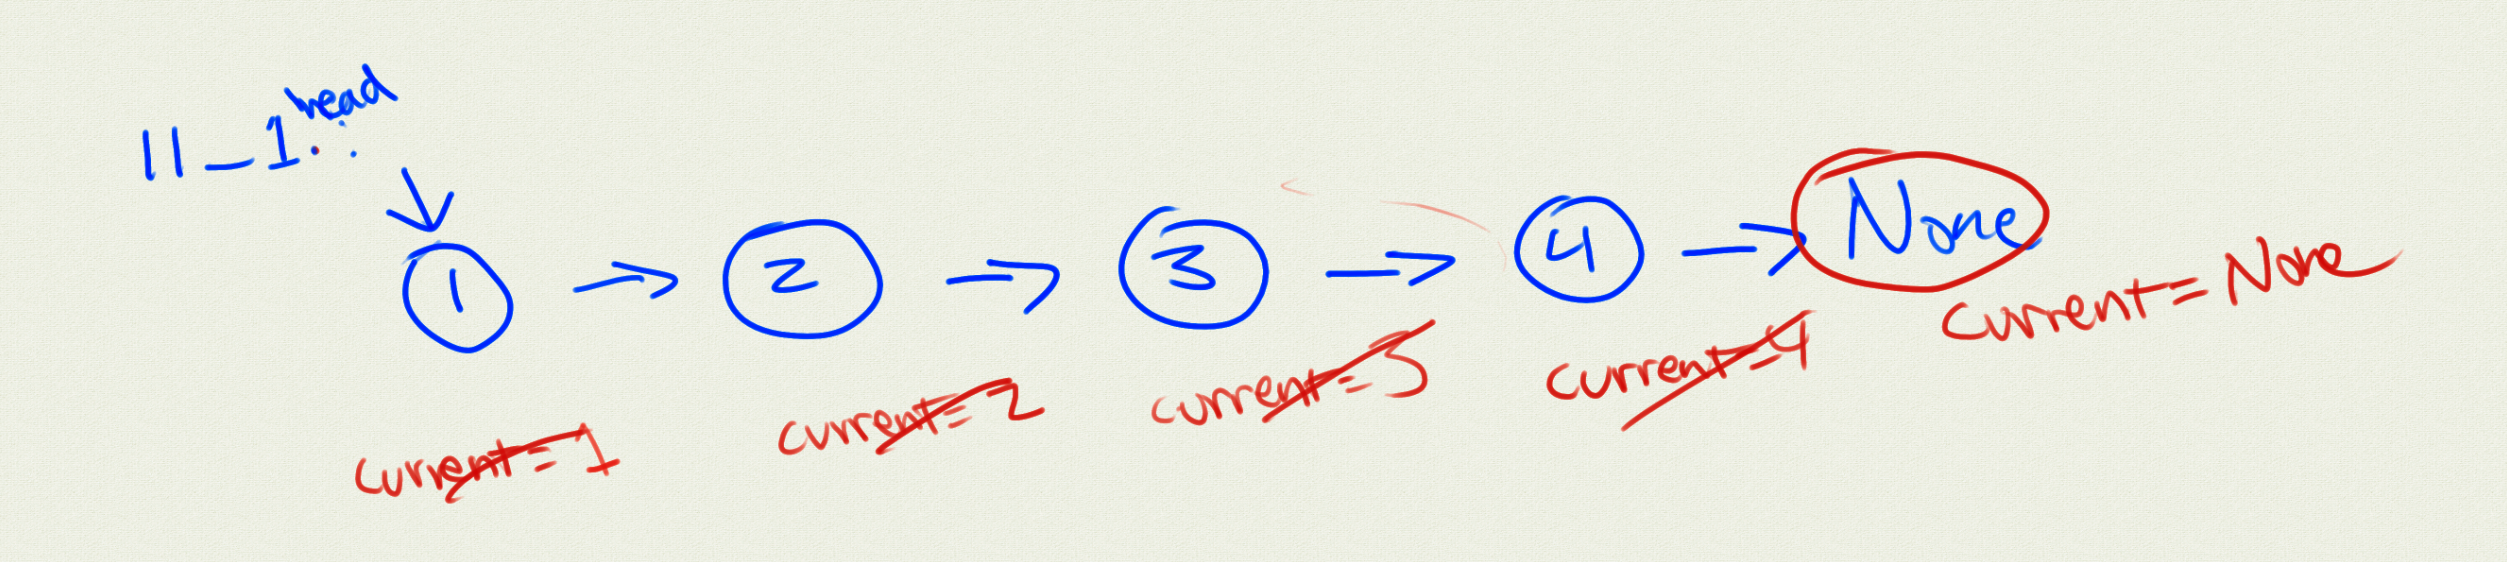 ll_1.head
1 → 2 → 3 → 4 → None
current=1
current=2
current=3
current=4
current=None